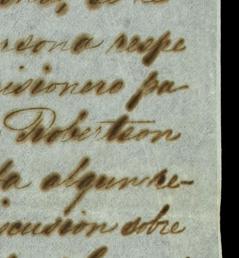 rsona respe
isionero pa
Robertson
ta algun re-
iscusion sobre